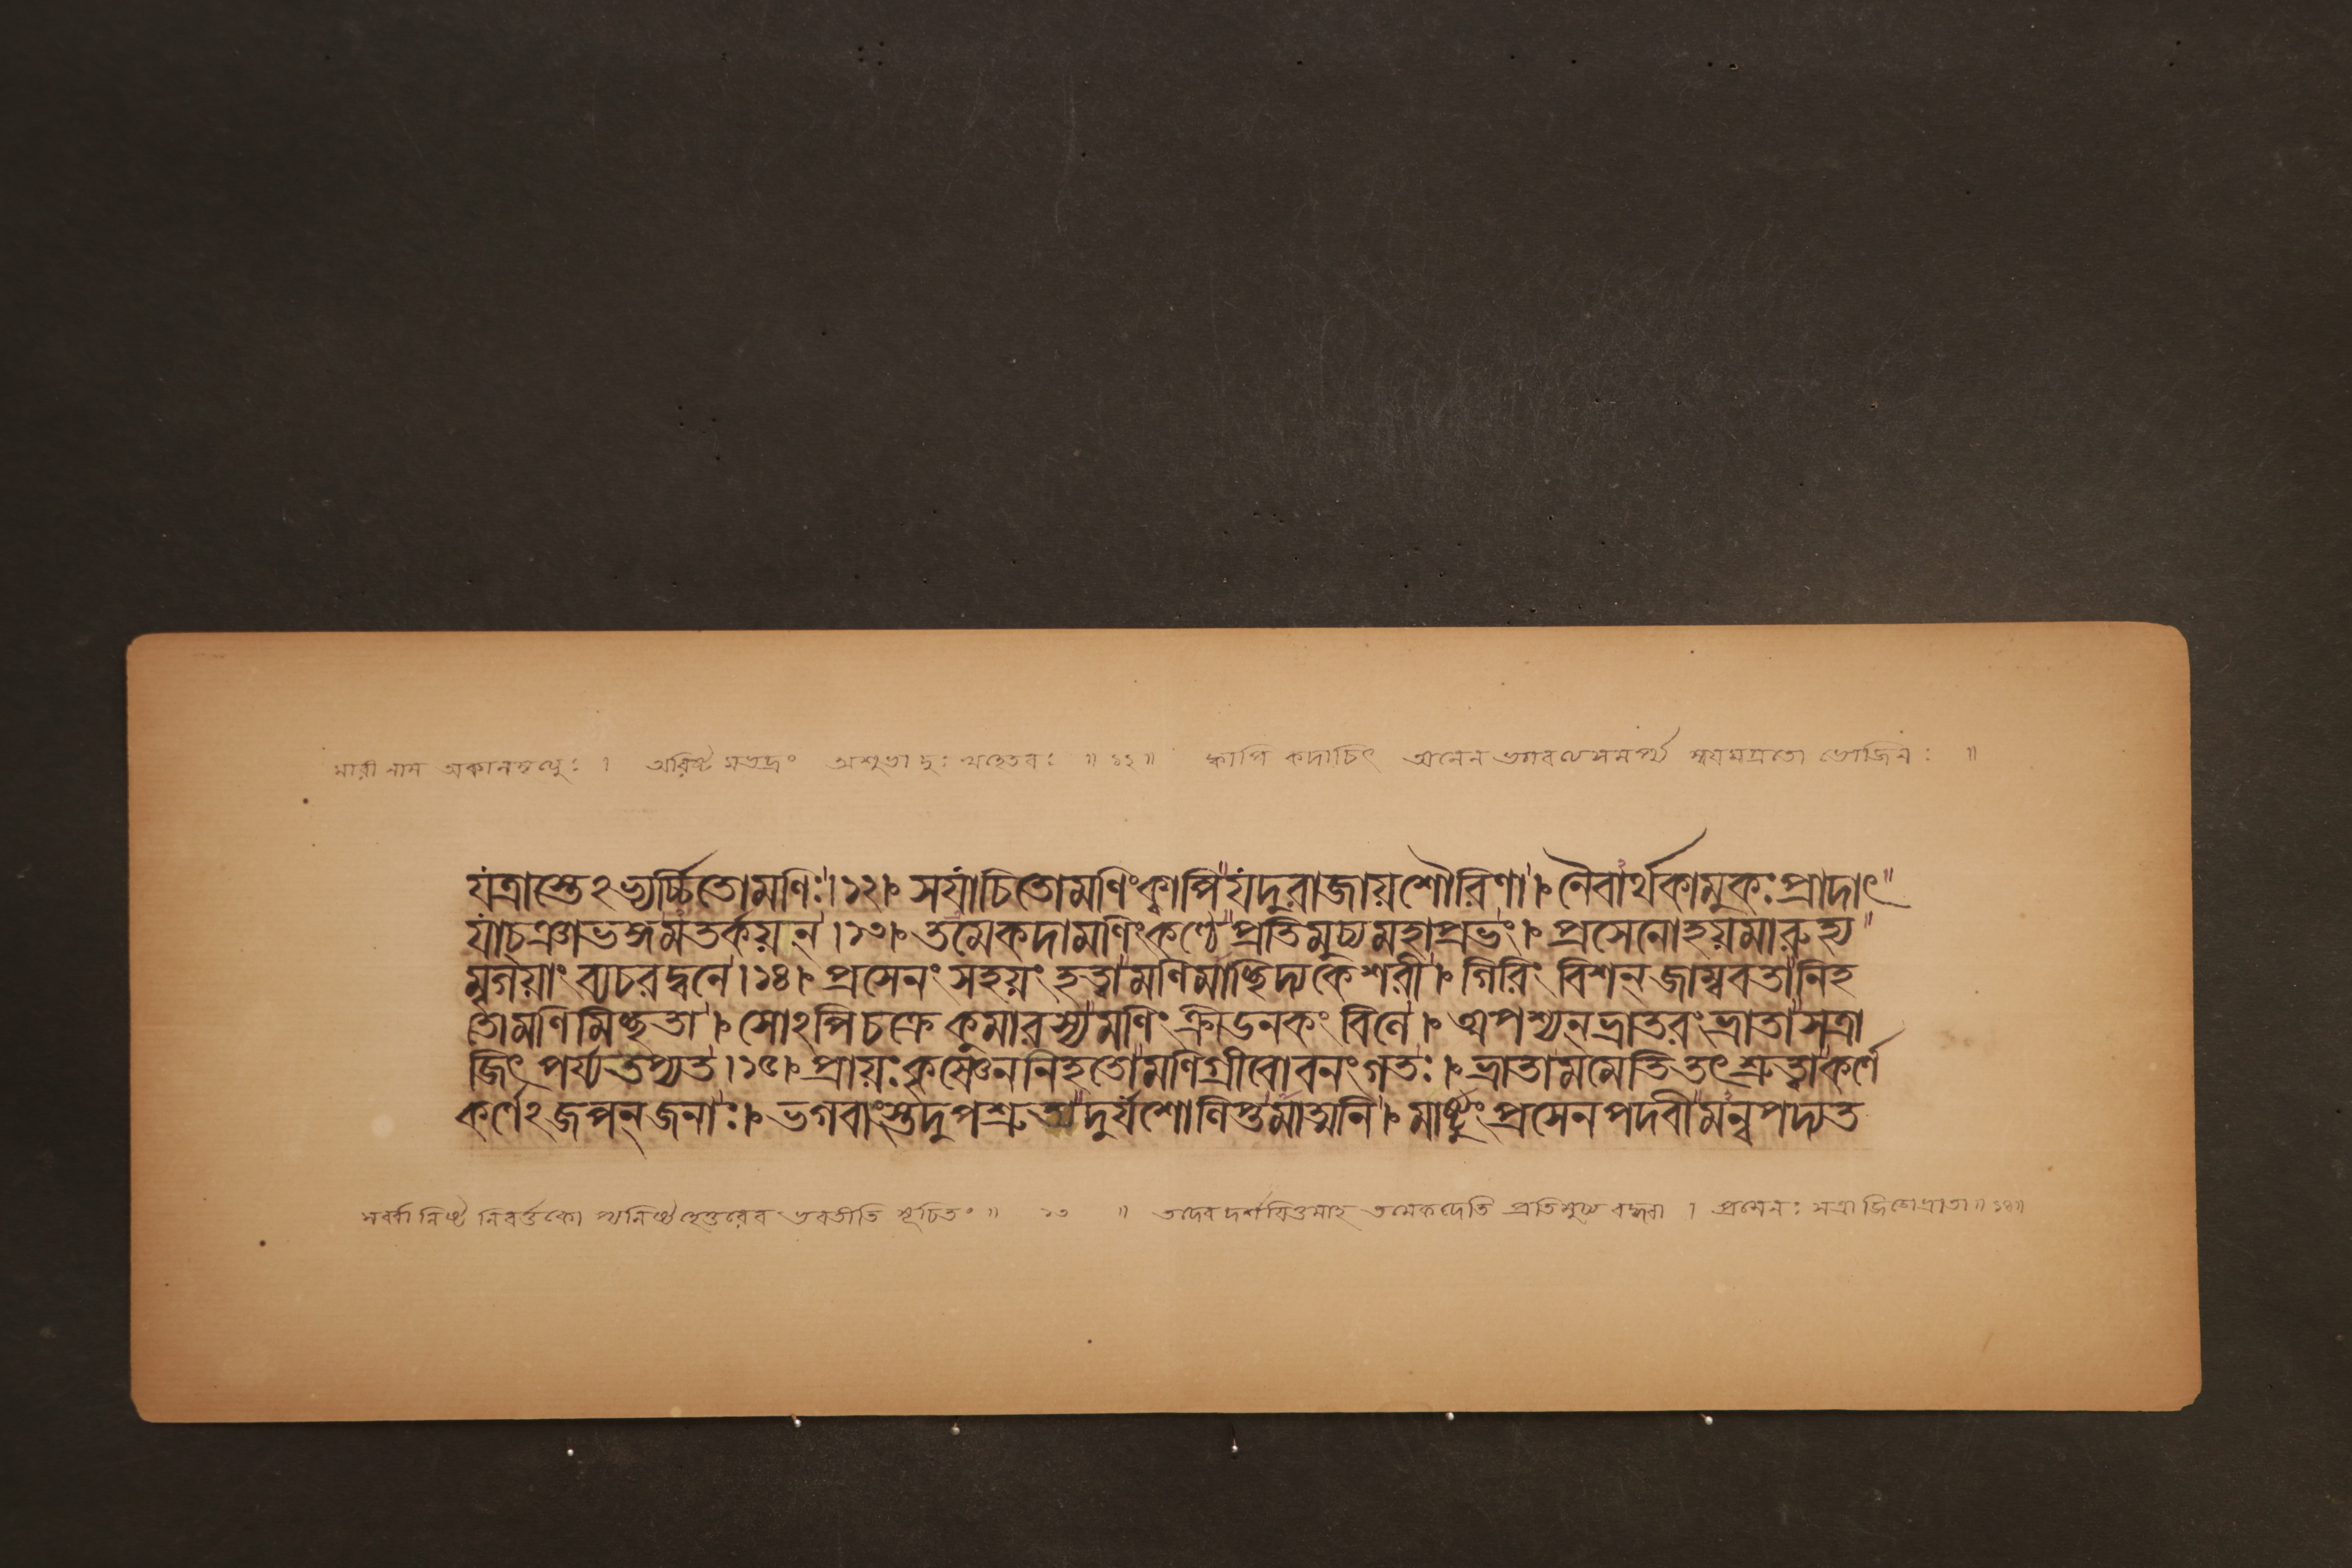 মারী নাম অকালমৃত্যুঃ । অরিষ্টমভদ্রং অশুভা দুঃখহেতবঃ ॥ ১২ ॥ ক্বাপি কদাচিৎ অনেন ভগবত্যসমর্প্য স্বয়মগ্রতো ভোজিনঃ ॥
যত্রাস্তেঽভ্যর্চ্চিতোমণিঃ।১২। সযাচিতোমণিংক্বাপি যদুরাজায়শৌরিণা। নৈবার্থকামুকঃপ্রাদাৎ
যাচঞাভঙ্গমতর্কয়ন্।১৩। তমেকদামণিংকণ্ঠে প্রতিমুচ্যমহাপ্রভং। প্রসেনোহয়মারুহ্য
মৃগয়াং ব্যচরদ্বনে।১৪। প্রসেনং সহয়ং হত্বামণিমাচ্ছিদ্যকেশরী। গিরিং বিশন্জাম্ববতানিহ
তোমণিমিচ্ছতা। সোঽপিচক্রে কুমারস্যমণিং ক্রীডনকং বিলে। অপশ্যন্ভ্রাতরংভ্রাতাসত্রা
জিৎ পর্য্যতপ্যত।১৫। প্রায়ঃকৃষ্ণেননিহতোমণিগ্রীবোবনংগতঃ। ভ্রাতামমেতিতৎশ্রুত্বাকর্ণে
কর্ণেঽজপন্জনাঃ। ভগবাংস্তদুপশ্রুত্যদুর্যশোলিপ্তমাত্মনি। মার্ষ্টুংপ্রসেনপদবীমন্বপদ্যত
নিবর্ত্তকো ভবতীতি সূচিতং ॥ ১৩ ॥ তদেব দর্শয়িতুমাহ তমেকদেতি প্রতিমুচ্য বদ্ধ্বা । প্রসেনঃ সত্রাজিতোভ্রাতা॥১৪॥